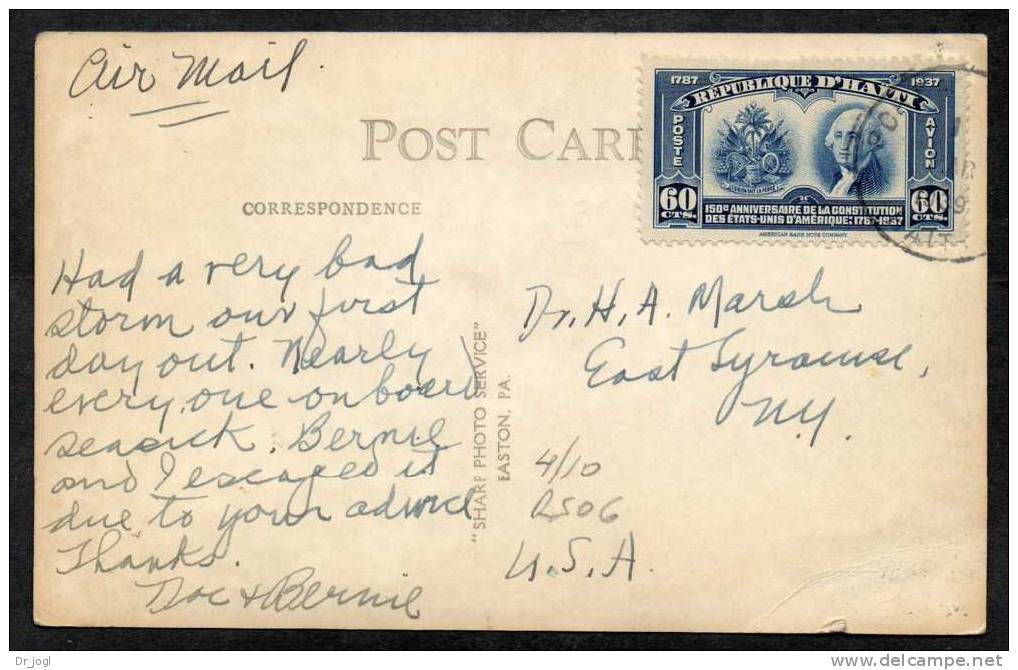 Air Mail.
POST CAR
CORRESPONDENCE
1787 1937
REPUBLIQUE D'HAITI
POSTE
AVION
L'UNION FAIT LA FORCE
60 CTS.
60 CTS.
150e ANNIVERSAIRE DE LA CONSTITUTION
DES ÉTATS-UNIS D'AMÉRIQUE: 1787-1937
AMERICAN BANK NOTE COMPANY.
Had a very bad
storm our first
day out. Nearly
every one on board
seasick. Bernie
and I escaped it
due to your advice
Thanks.
Doc & Bernie
"SHARP PHOTO SERVICE"
EASTON, PA.
Dr. H. A. Marsh
East Syracuse,
N.Y.
4/10
RS06
U.S.A.
Dr.jogl
www.delcampe.net